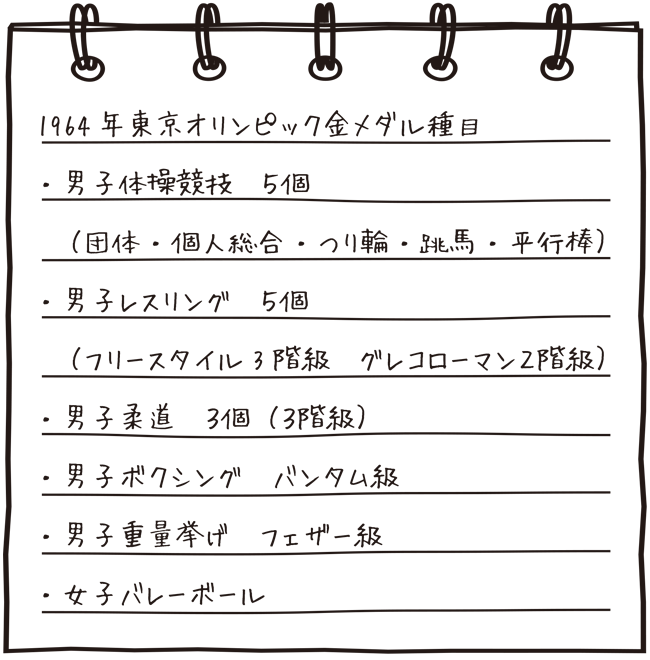 1964年東京オリンピック金メダル種目
・男子体操競技　5個
（団体・個人総合・つり輪・跳馬・平行棒）
・男子レスリング　5個
（フリースタイル3階級　グレコローマン2階級）
・男子柔道　3個（3階級）
・男子ボクシング　バンタム級
・男子重量挙げ　フェザー級
・女子バレーボール